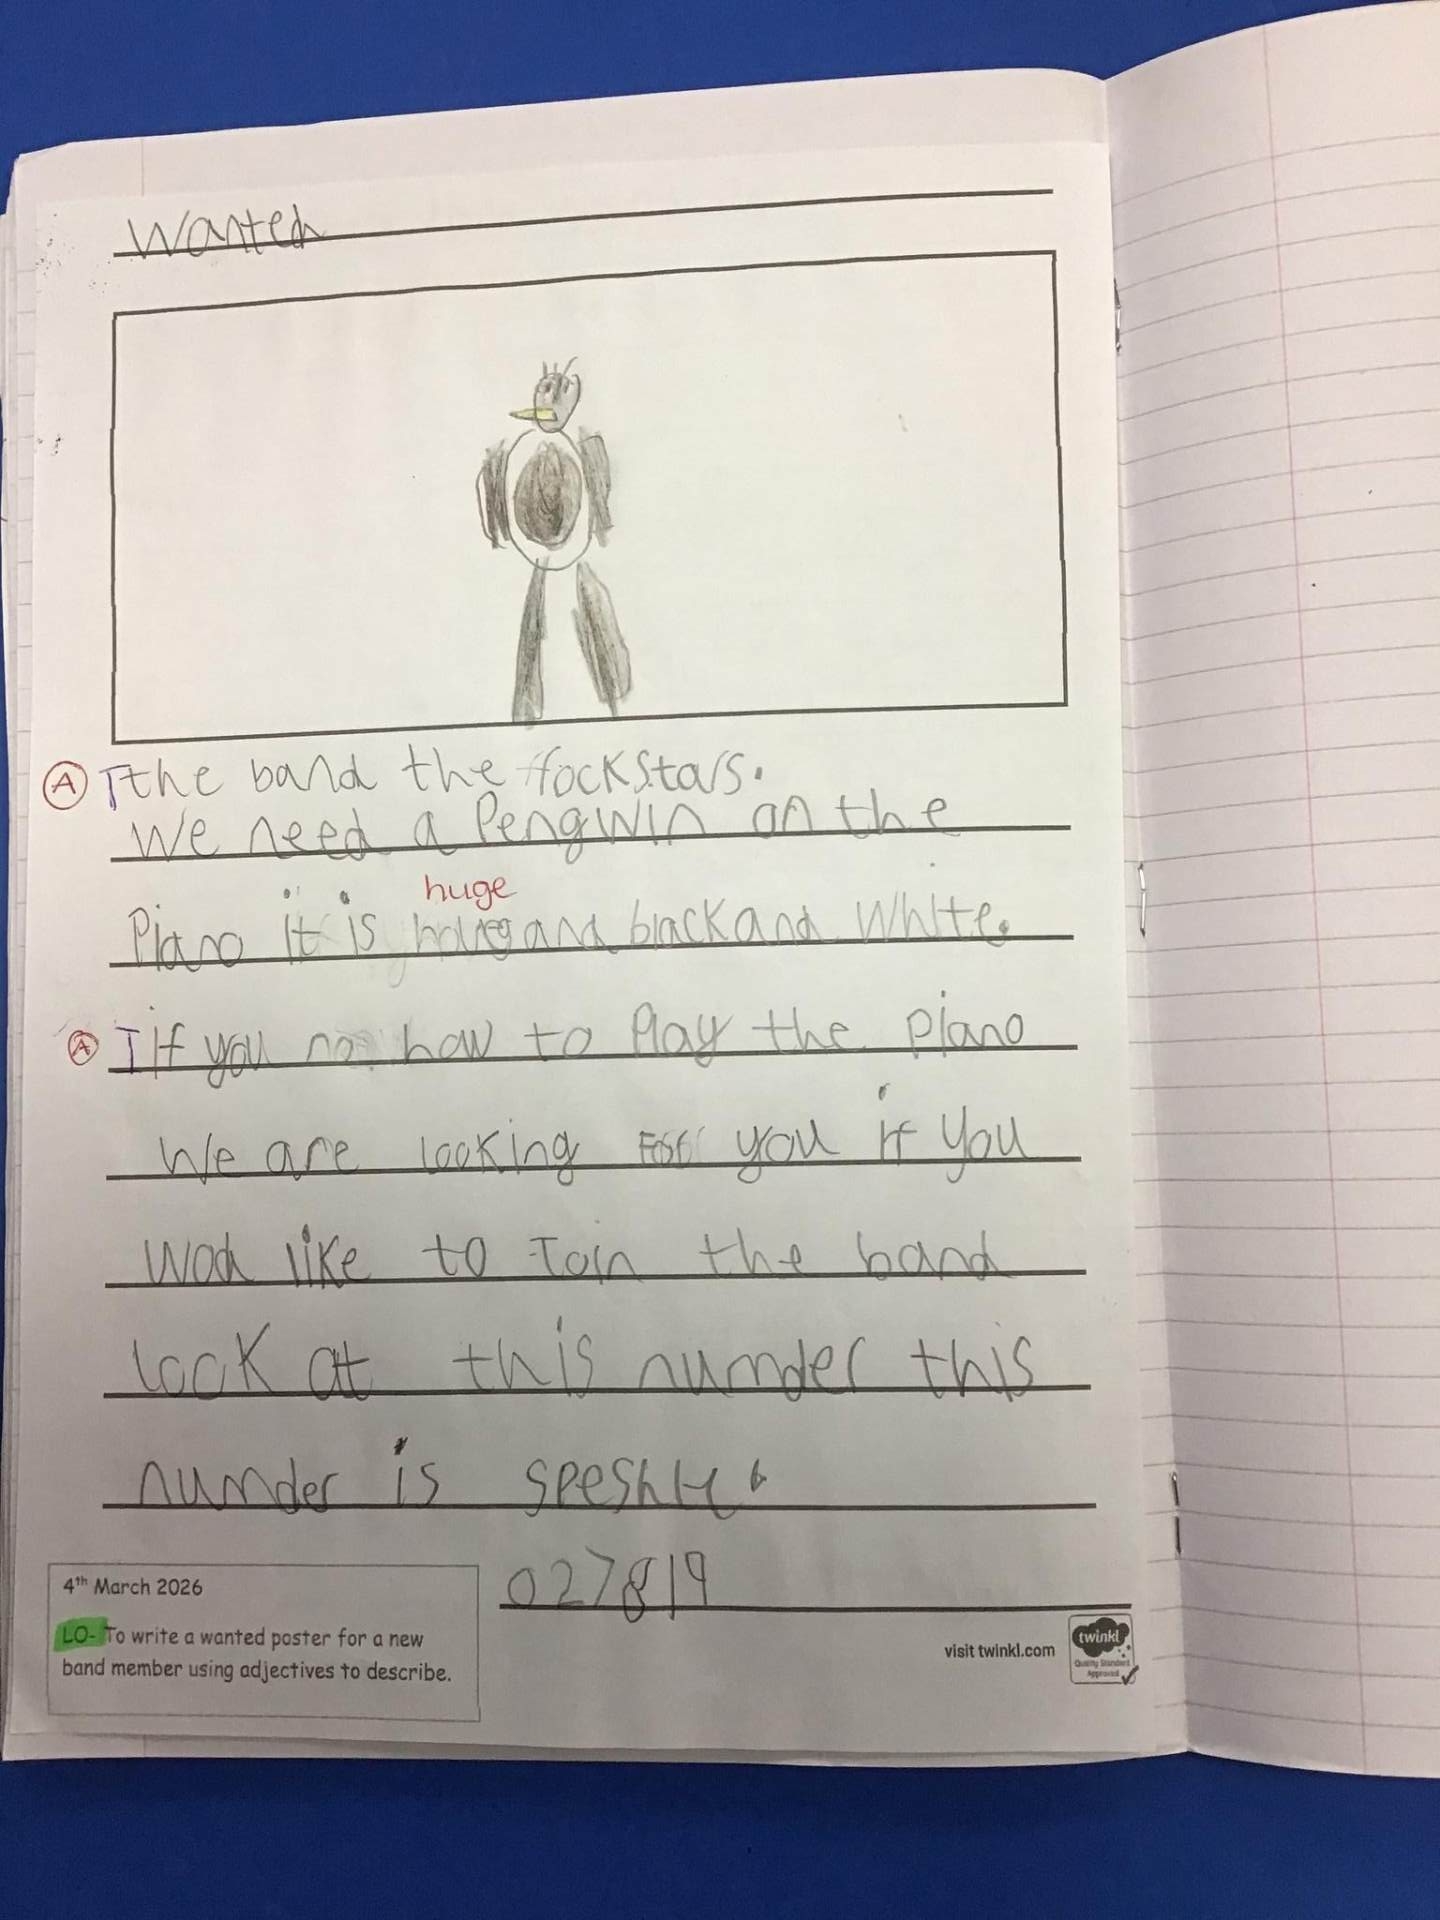 Wanted
A Tthe band the rockstars.
We need a Pengwin on the
huge
Piano it is and black and white.
A Iif you no how to Play the piano
We are looking for you if you
wod like to Join the band
look at this numder this
numder is speshll.
027819
4th March 2026
LO- To write a wanted poster for a new
band member using adjectives to describe.
visit twinkl.com
twinkl
Quality Standard
Approved